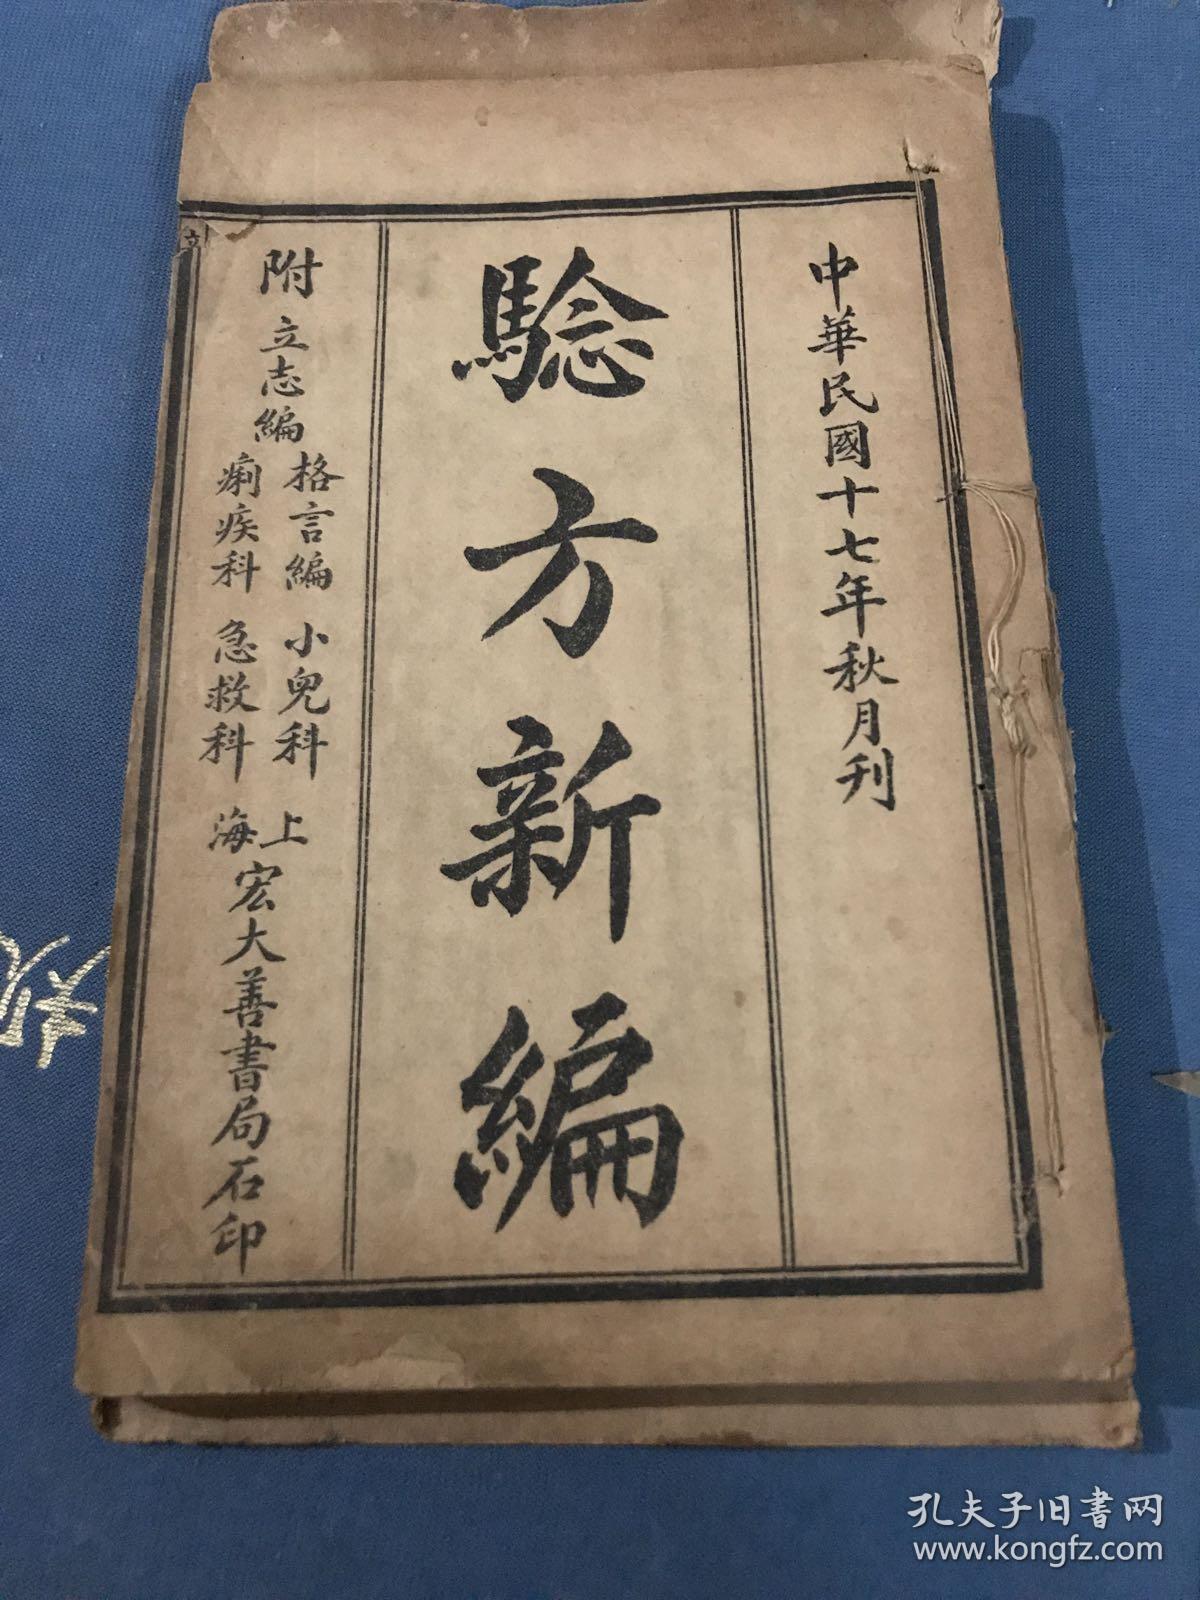 中華民國十七年秋月刊
騐方新編
附
立志編
格言編 小兒科
痢疾科 急救科
上海
宏大善書局石印
孔夫子旧书网
www.kongfz.com